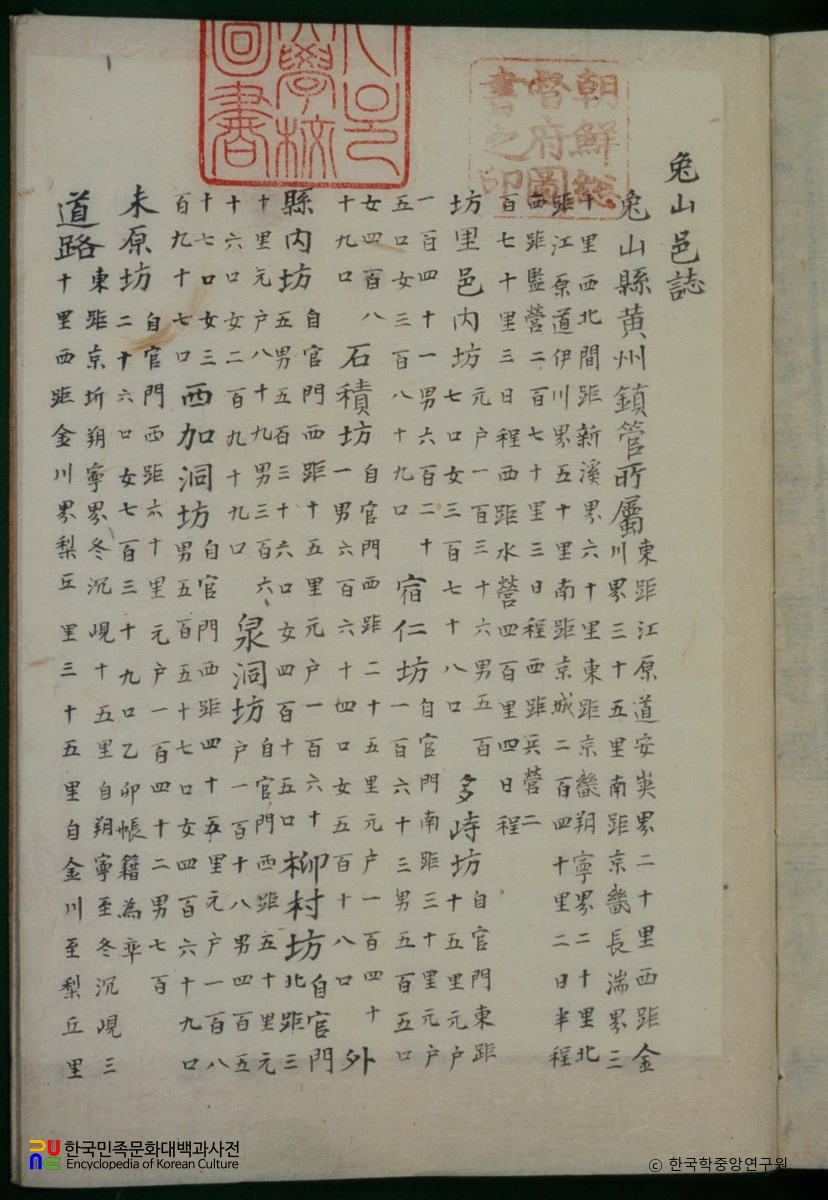 兔山邑誌
兔山縣黃州鎮管所屬 東距江原道安峽界二十里西距金
川界三十五里南距京畿長湍界三
十里西北間距新溪界六十里東距京畿朔寧界二十里北
距江原道伊川界五十里南距京城二百四十里二日半程
西距監營二百七十里三日程西距兵營二
百七十里三日程西距水營四百里四日程
坊里邑內坊 元戶一百三十六男五百
七口女三百七十八口
多峙坊 自官門東距
十五里元戶
一百四十一男六百二十
五口女三百八十九口
宿仁坊 自官門南距三十里元戶
一百六十三男五百五口
女四百八
十九口
石積坊 自官門西距二十五里元戶一百四十
一男六百六十四口女五百十八口
外
縣內坊 自官門西距十五里元戶一百六十
五男五百三十六口女四百十五口
柳村坊 自官門
北距三
十里元戶八十九男三百六
十六口女二百九十九口
泉洞坊 自官門西距五十里元
戶一百十八男四百五
十七口女三
百九十七口
西加洞坊 自官門西距四十五里元戶一百八
男五百五十七口女四百六十九口
未原坊 自官門西距六十里元戶一百四十二男七百
二十六口女七百三十九口乙卯帳籍為率
道路 東距京圻朔寧界冬沉峴十五里自朔寧至冬沉峴三
十里西距金川界梨丘里三十五里自金川至梨丘里
朝鮮総
督府圖
書之印
學校
圖書
한국민족문화대백과사전
Encyclopedia of Korean Culture
© 한국학중앙연구원